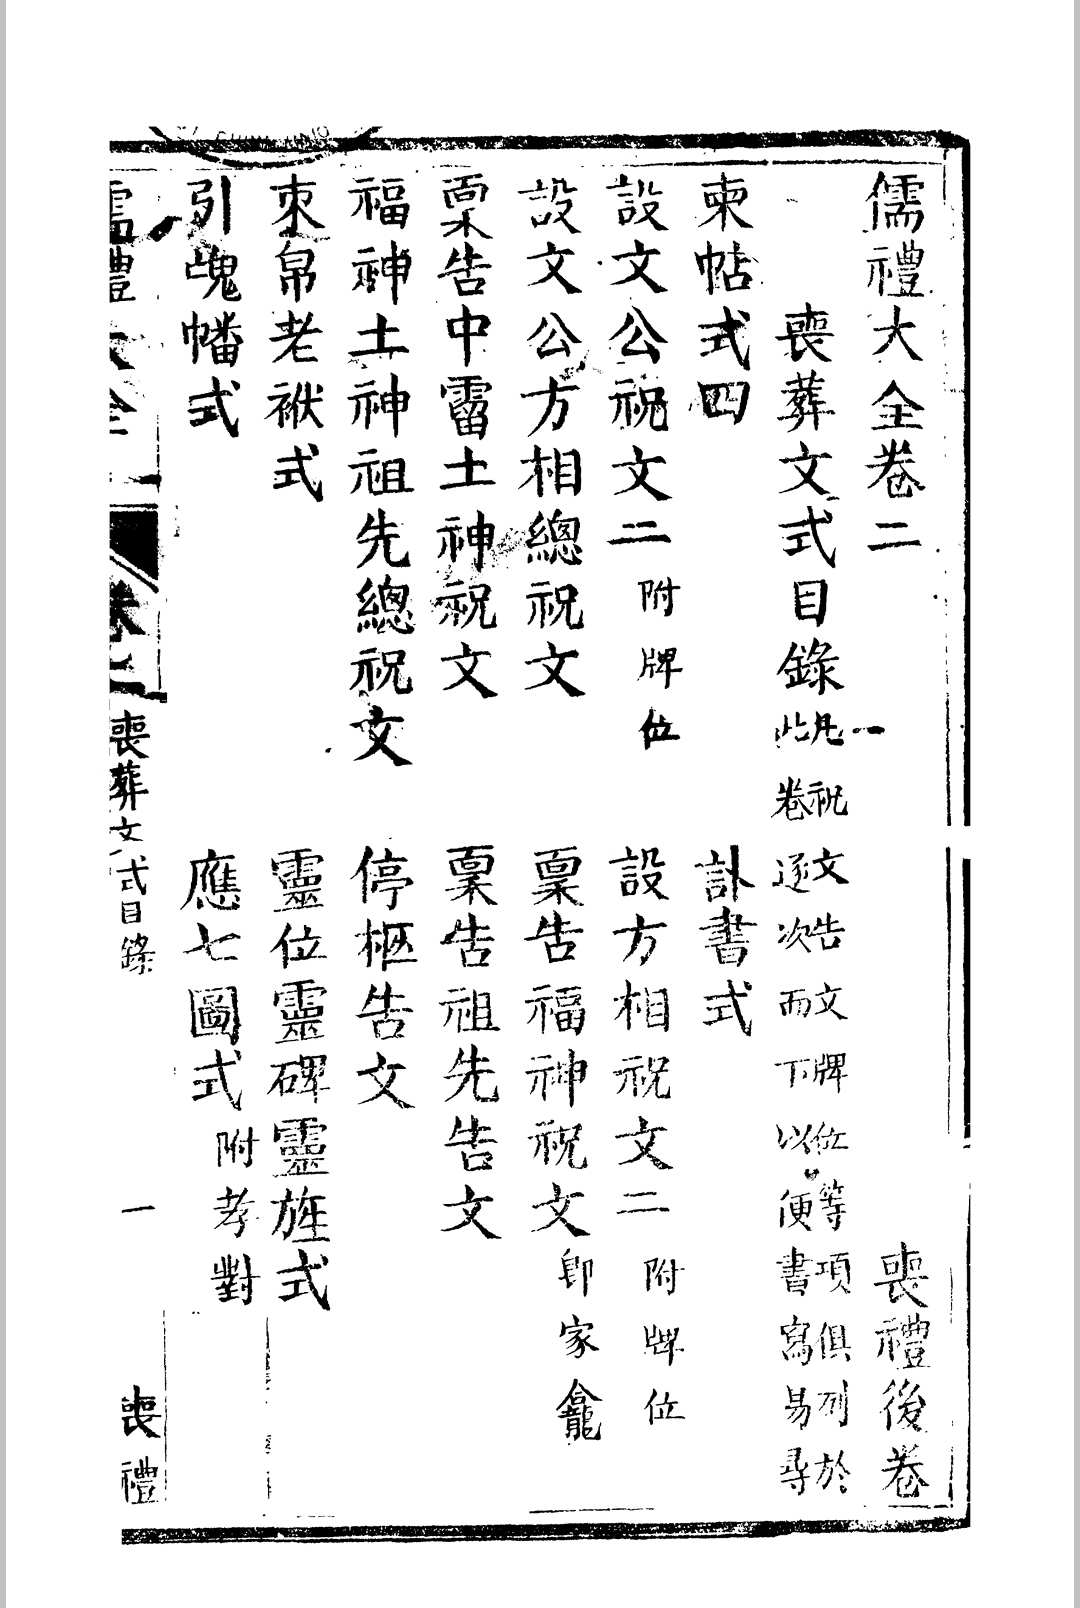 儒禮大全卷二 喪禮後卷
喪葬文式目錄一 凡祝文告文牌位等項俱列於
此卷逐次而下以便書寫易尋
柬帖式四 訃書式
設文公祝文二 附牌位 設方相祝文二 附牌位
設文公方相總祝文 稟告福神祝文 即家龕
稟告中霤土神祝文 稟告祖先告文
福神土神祖先總祝文 停柩告文
束帛老袱式 靈位靈碑靈旌式
引魂幡式 應七圖式 附孝對
儒禮大全 卷二 喪葬文式目錄 一 喪禮